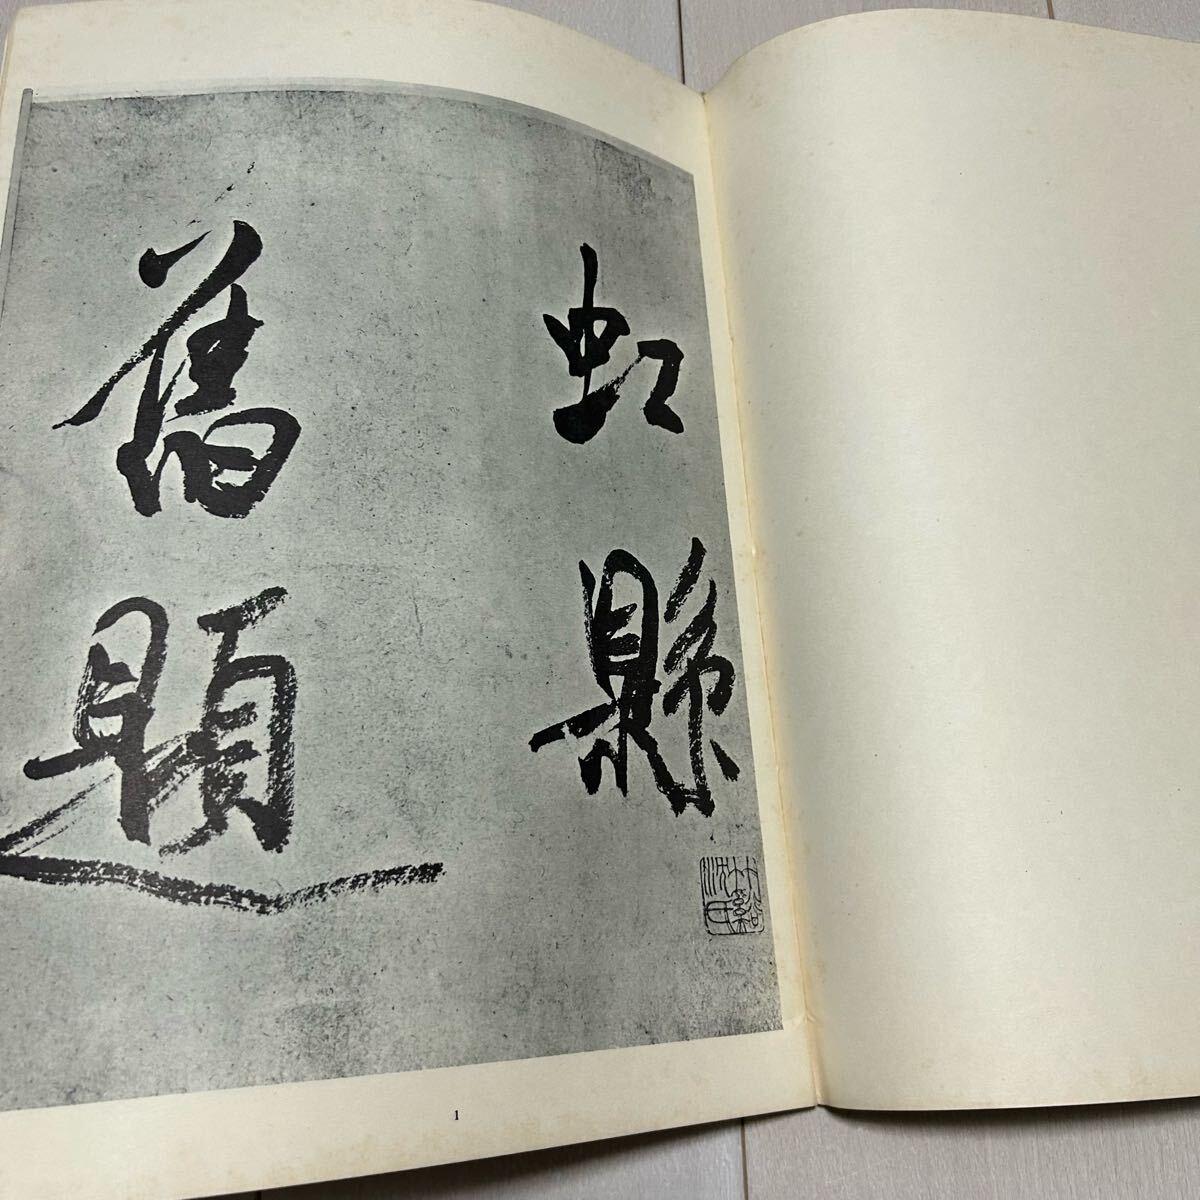 虹縣
舊題
1